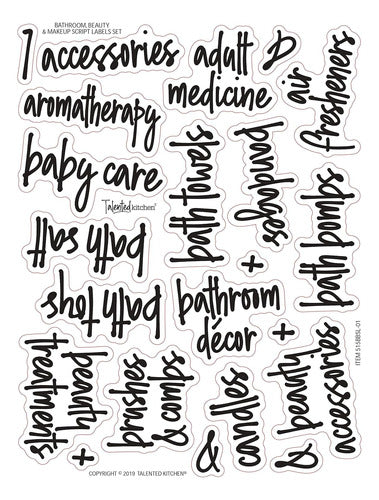 BATHROOM, BEAUTY
& MAKEUP SCRIPT LABELS SET
1 accessories
adult
medicine
D
air
fresheners
aromatherapy
baby care
Talented kitchen®
bath towels
bandages
bath bombs
bath salt
bath toys
+
bathroom
décor
+
beauty
treatments
+
brushes
& combs
candles
&
& beauty
accessories
ITEM 5158BSL-01
COPYRIGHT © 2019 TALENTED KITCHEN®